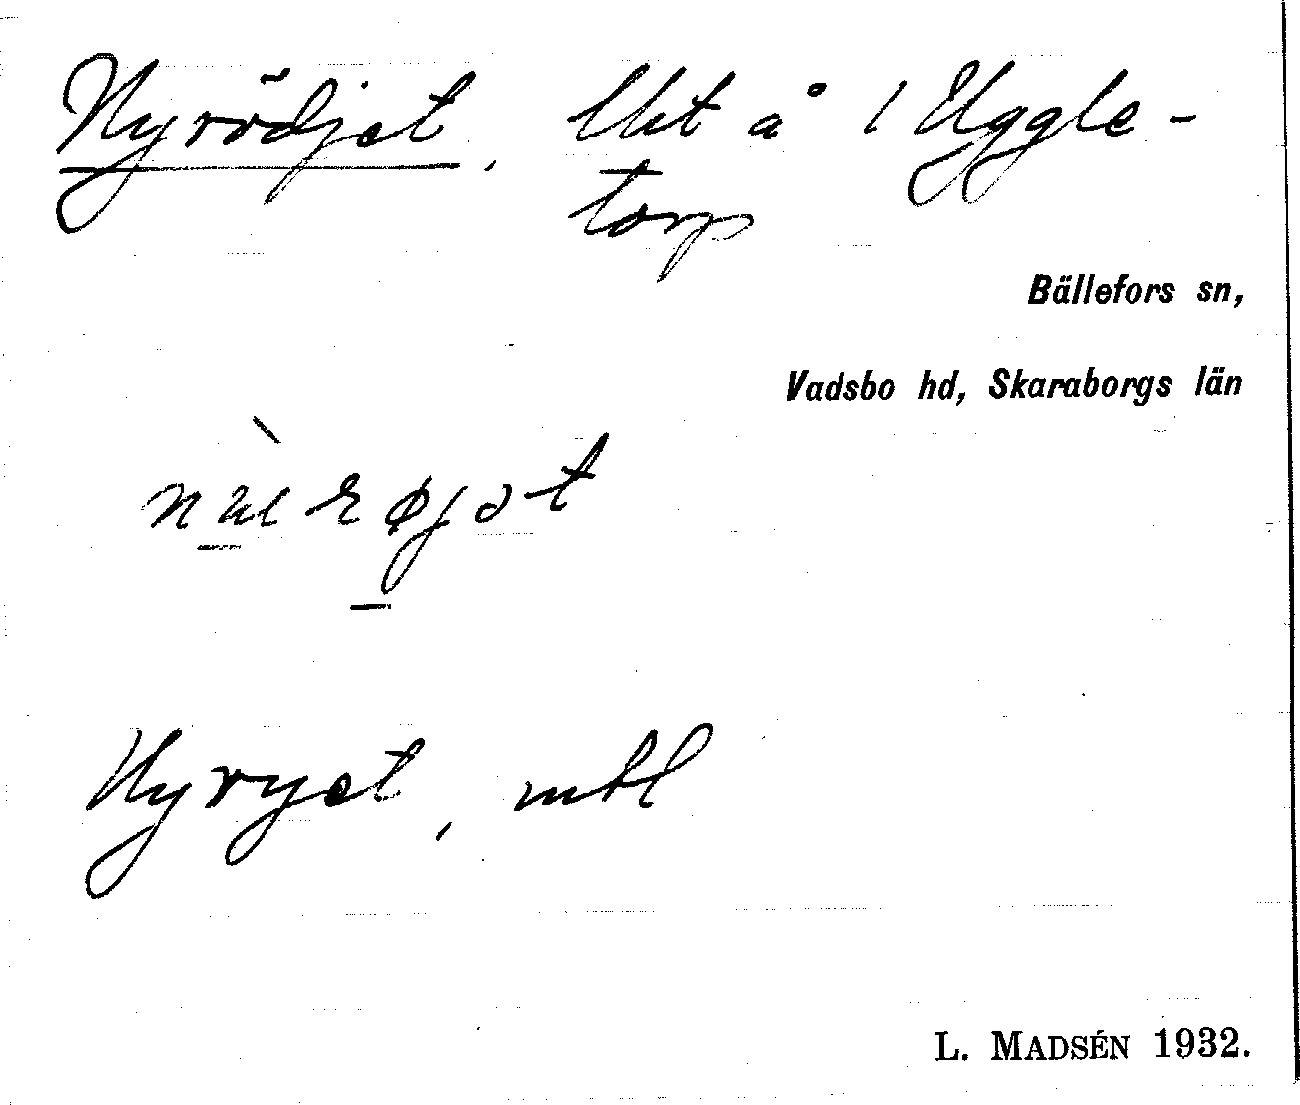 Nyrödjet, lht å 1 Uggle-
torp
Bällefors sn,
Vadsbo hd, Skaraborgs län
Nyryet, mtl
L. MADSÉN 1932.